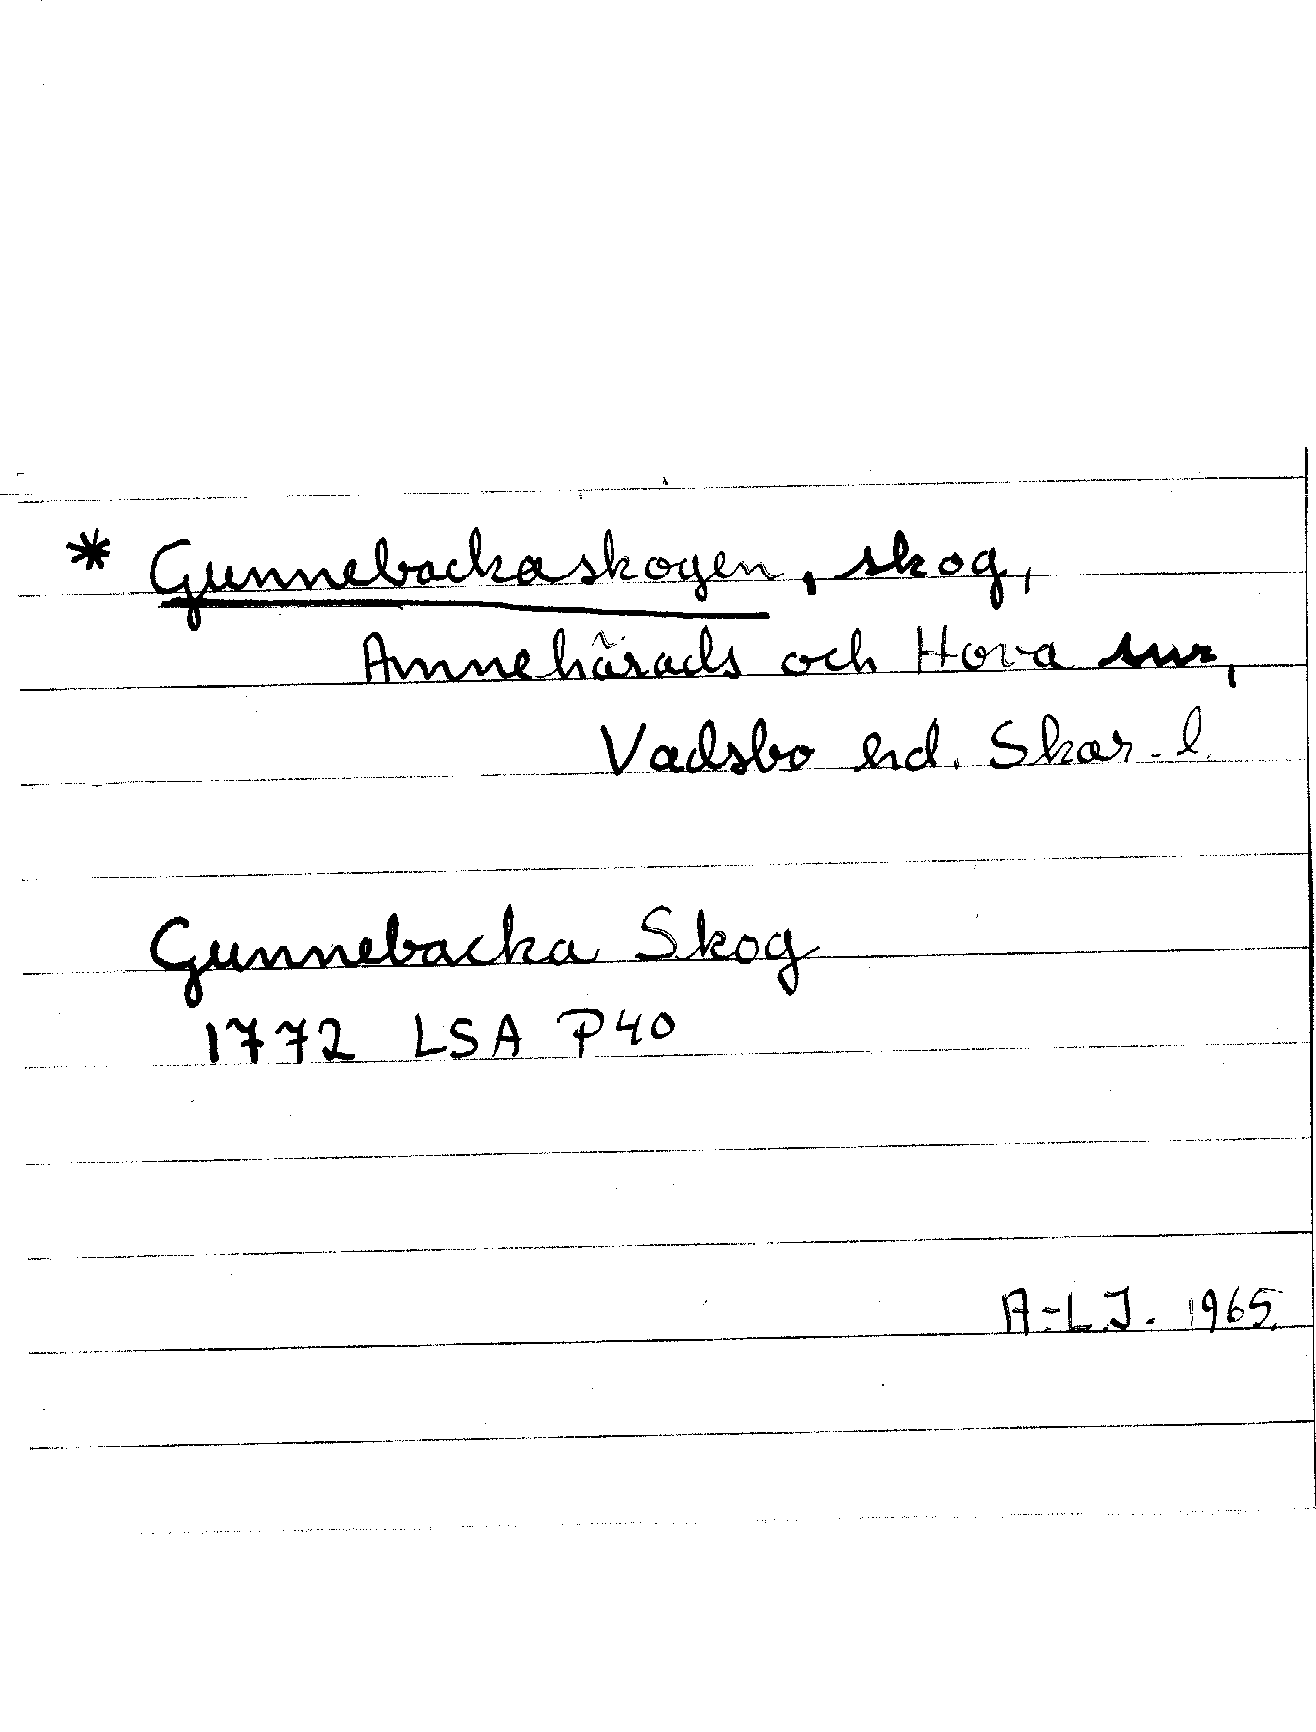 * Gunnebackaskogen, skog,
Amnehärads och Hova snr,
Vadsbo hd. Skar. l.
Gunnebacka Skog
1772 LSA P40
A-L.J. 1965.